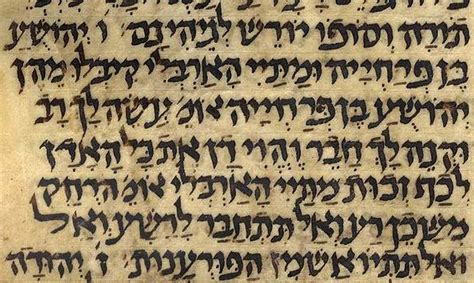 תורה וסופו יורש לגיהינם ו יהושע
בן פרחייה ומתיי הארבלי קיבלו מהן
יהושע בן פרחייה אומ' עשה לך רב
וקנה לך חבר והוי דן את כל האדן
לכף זכות מתיי הארבילי אומ' הרחק
משכן רע ואל תתחבר לרשע ואל
ואל תתייאש מן הפורענות ז יהודה